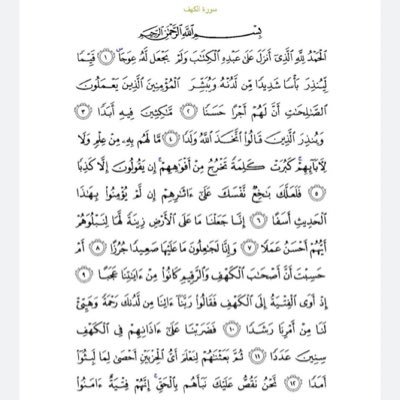 سورة الكهف
بِسْمِ اللَّهِ الرَّحْمَٰنِ الرَّحِيمِ
الْحَمْدُ لِلَّهِ الَّذِي أَنزَلَ عَلَىٰ عَبْدِهِ الْكِتَابَ وَلَمْ يَجْعَل لَّهُ عِوَجًا ۜ ﴿١﴾ قَيِّمًا
لِّيُنذِرَ بَأْسًا شَدِيدًا مِّن لَّدُنْهُ وَيُبَشِّرَ الْمُؤْمِنِينَ الَّذِينَ يَعْمَلُونَ
الصَّالِحَاتِ أَنَّ لَهُمْ أَجْرًا حَسَنًا ﴿٢﴾ مَّاكِثِينَ فِيهِ أَبَدًا ﴿٣﴾
وَيُنذِرَ الَّذِينَ قَالُوا اتَّخَذَ اللَّهُ وَلَدًا ﴿٤﴾ مَّا لَهُم بِهِ مِنْ عِلْمٍ وَلَا
لِآبَائِهِمْ ۚ كَبُرَتْ كَلِمَةً تَخْرُجُ مِنْ أَفْوَاهِهِمْ ۚ إِن يَقُولُونَ إِلَّا كَذِبًا
﴿٥﴾ فَلَعَلَّكَ بَاخِعٌ نَّفْسَكَ عَلَىٰ آثَارِهِمْ إِن لَّمْ يُؤْمِنُوا بِهَٰذَا
الْحَدِيثِ أَسَفًا ﴿٦﴾ إِنَّا جَعَلْنَا مَا عَلَى الْأَرْضِ زِينَةً لَّهَا لِنَبْلُوَهُمْ
أَيُّهُمْ أَحْسَنُ عَمَلًا ﴿٧﴾ وَإِنَّا لَجَاعِلُونَ مَا عَلَيْهَا صَعِيدًا جُرُزًا ﴿٨﴾ أَمْ
حَسِبْتَ أَنَّ أَصْحَابَ الْكَهْفِ وَالرَّقِيمِ كَانُوا مِنْ آيَاتِنَا عَجَبًا ﴿٩﴾
إِذْ أَوَى الْفِتْيَةُ إِلَى الْكَهْفِ فَقَالُوا رَبَّنَا آتِنَا مِن لَّدُنكَ رَحْمَةً وَهَيِّئْ
لَنَا مِنْ أَمْرِنَا رَشَدًا ﴿١٠﴾ فَضَرَبْنَا عَلَىٰ آذَانِهِمْ فِي الْكَهْفِ
سِنِينَ عَدَدًا ﴿١١﴾ ثُمَّ بَعَثْنَاهُمْ لِنَعْلَمَ أَيُّ الْحِزْبَيْنِ أَحْصَىٰ لِمَا لَبِثُوا
أَمَدًا ﴿١٢﴾ نَّحْنُ نَقُصُّ عَلَيْكَ نَبَأَهُم بِالْحَقِّ ۚ إِنَّهُمْ فِتْيَةٌ آمَنُوا